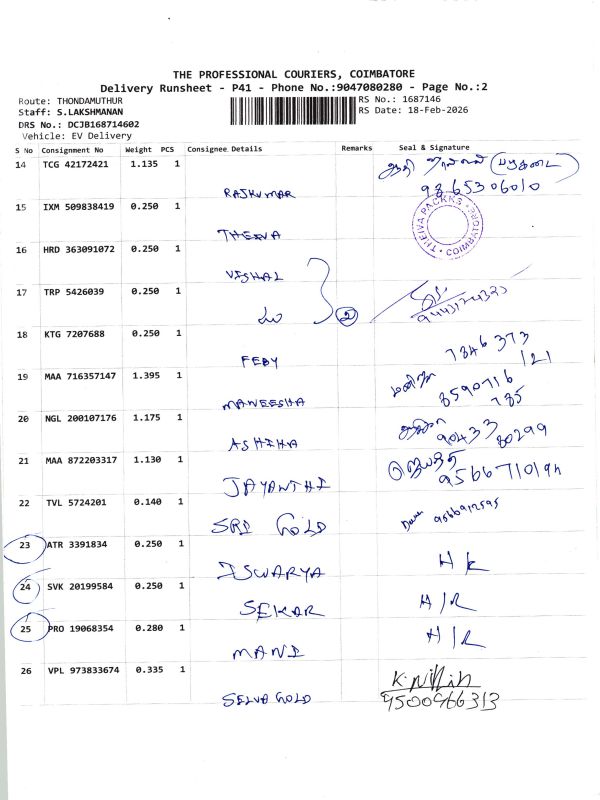 THE PROFESSIONAL COURIERS, COIMBATORE
Delivery Runsheet - P41 - Phone No.:9047080280 - Page No.:2
Route: THONDAMUTHUR
Staff: S.LAKSHMANAN
DRS No.: DCJB168714602
Vehicle: EV Delivery
RS No.: 1687146
RS Date: 18-Feb-2026
S No Consignment No Weight PCS Consignee Details Remarks Seal & Signature
14 TCG 42172421 1.135 1
RAJKUMAR 9865306010
15 IXM 509838419 0.250 1
THEIVA PACKKS COIMBATORE
THEIVA
16 HRD 363091072 0.250 1
VISHAL
17 TRP 5426039 0.250 1
2
18 KTG 7207688 0.250 1
7846 373
121
FEBY
19 MAA 716357147 1.395 1
8590716
785
MANEESHA
20 NGL 200107176 1.175 1
90433
80299
ASHIHA
21 MAA 872203317 1.130 1
ஜெயந்தி
JAYANTHI
22 TVL 5724201 0.140 1
9566912595
SRI GOLD
23 ATR 3391834 0.250 1
H/R
ISWARYA
24 SVK 20199584 0.250 1
H/R
SEKAR
25 PRO 19068354 0.280 1
H/R
MANI
26 VPL 973833674 0.335 1
K.Nithin
SELVA GOLD 9500966313